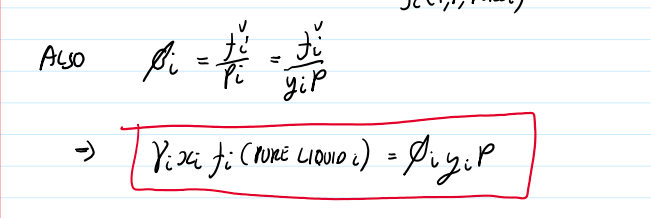 ALSO ϕi = fiᵛ / Pi = fiᵛ / yiP
⇒ γixi fi (PURE LIQUID i) = ϕi yi P